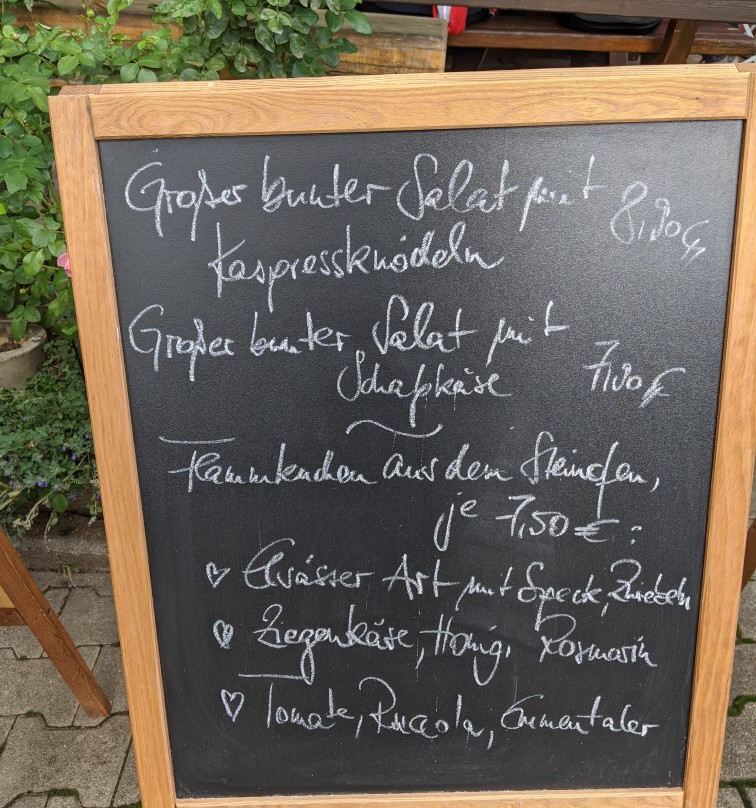 Großer bunter Salat mit 8,90 €
Kaspressknödeln
Großer bunter Salat mit
Schafskäse 7,90 €
Flammkuchen aus dem Steinofen,
je 7,50 € :
♡ Elsässer Art mit Speck, Zwiebeln
♡ Ziegenkäse, Honig, Rosmarin
♡ Tomate, Rucola, Emmentaler